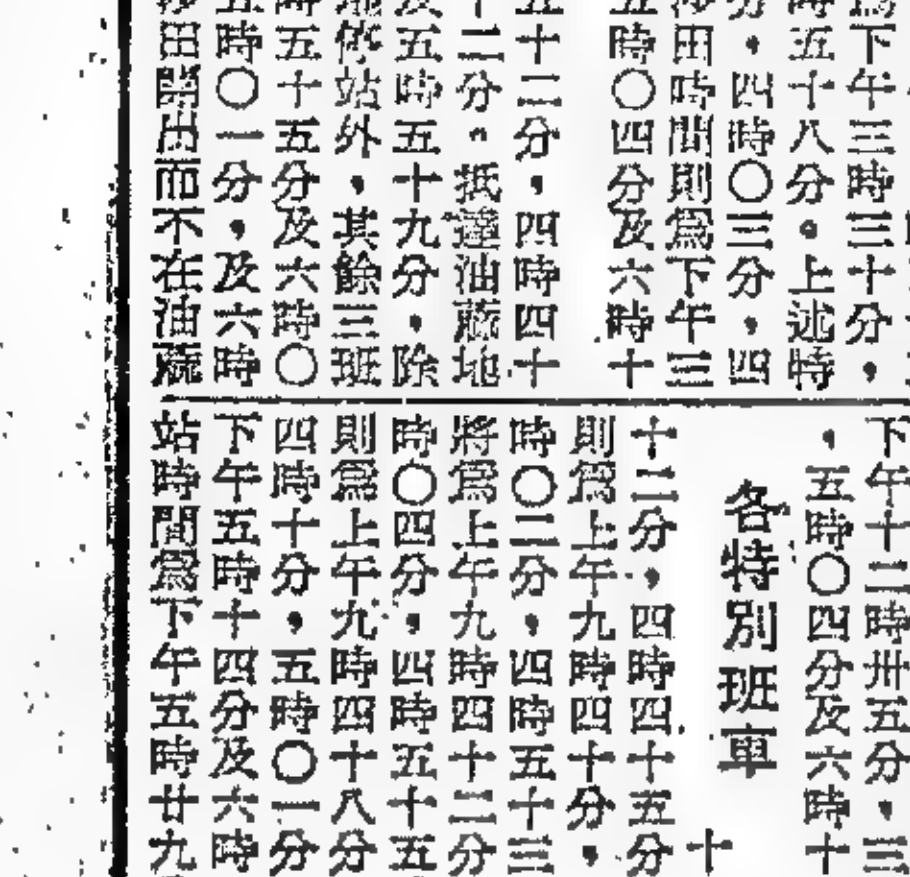 爲下午三時三十分，
時五十八分。上述特
分，四時〇三分，四
沙田時間則爲下午三
五時〇四分及六時十
五十二分，四時四十
十二分。抵達油蔴地
及五時五十九分，除
地停站外，其餘三班
時五十五分及六時〇
五時〇一分，及六時
沙田開出而不在油蔴
下午十二時卅五分，三
，五時〇四分及六時十
各特別班車
十
十二分，四時四十五分
則爲上午九時四十分，
時〇二分，四時五十三
將爲上午九時四十二分
時〇四分，四時五十五
則爲上午九時四十八分
四時十分，五時〇一分
下午五時十四分及六時
站時間爲下午五時廿九